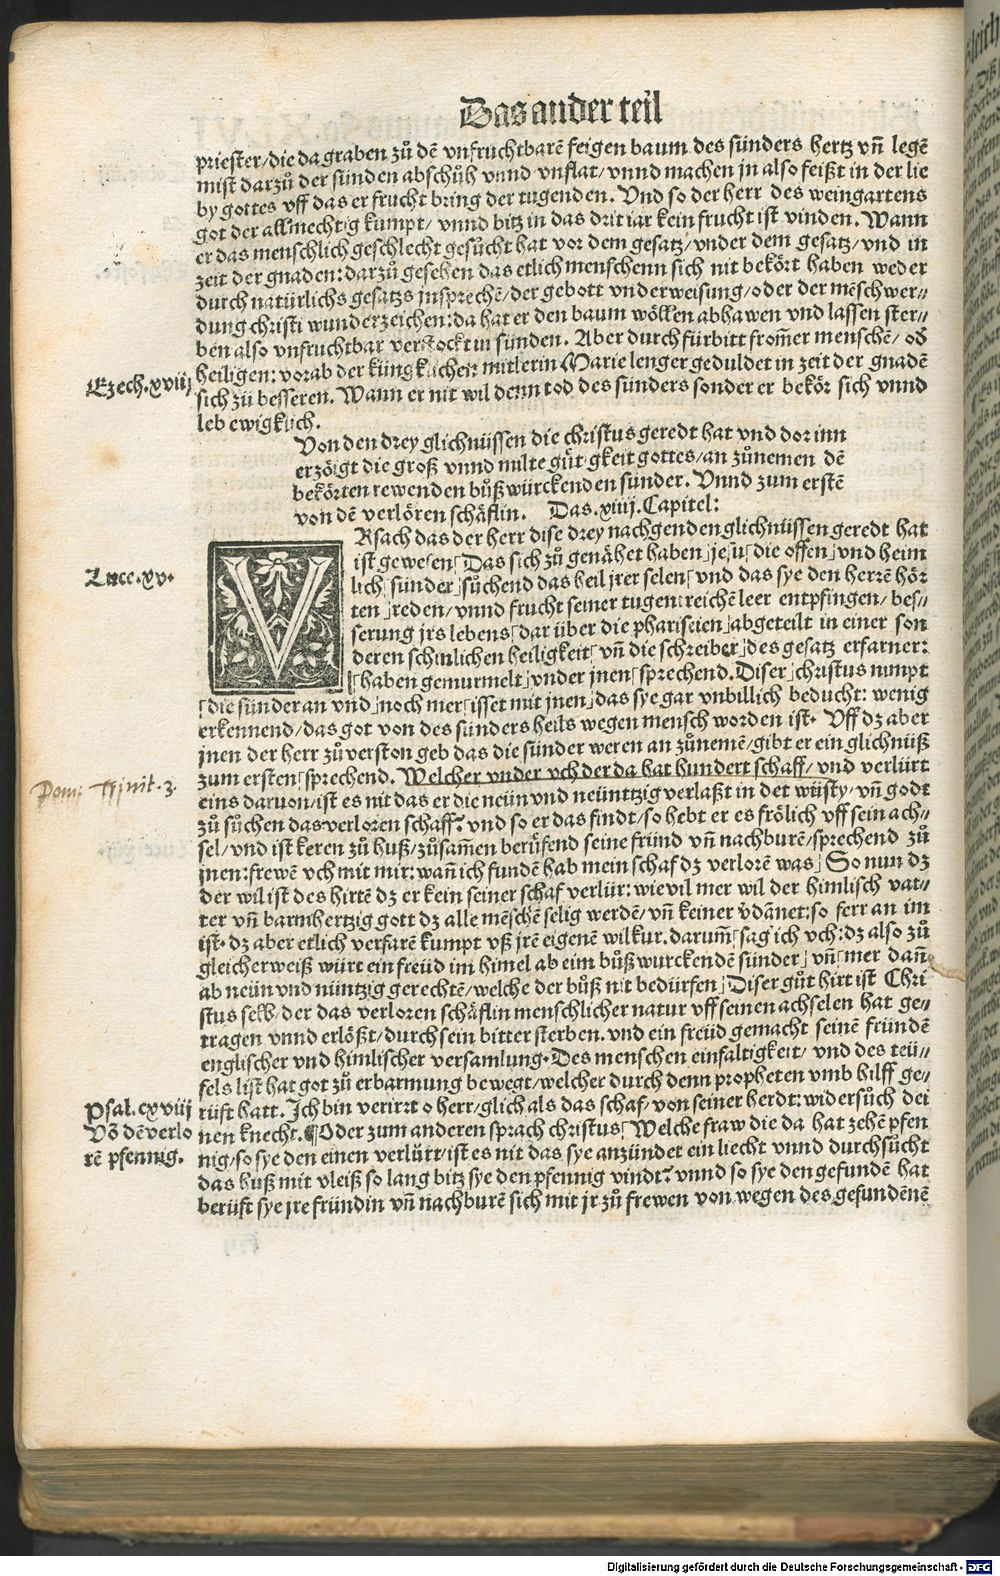 Das ander teil
priester/die da graben zů dē vnfruchtbarē feigen baum des sünders hertz vn̄ legē
mist darzů der sünden abschüh vnnd vnflat/vnnd machen jn also feißt in der lie
by gottes vff das er frucht bring der tugenden. Vnd so der herr des weingartens
got der allmechtig kumpt/vnnd bitz in das drit iar kein frucht ist vinden. Wann
er das menschlich geschlecht gesůcht hat vor dem gesatz/vnder dem gesatz/vnd in
zeit der gnaden: darzů gesehen das etlich menschenn sich nit bekört haben weder
durch natürlichs gesatzs jnsprechē/der gebott vnderweisung/oder der mēschwer⸗
dung christi wunderzeichen: da hat er den baum wöllen abhawen vnd lassen ster⸗
ben also vnfruchtbar verstockt in sünden. Aber durch fürbitt from̄er menschē/od
Ezech.xviij
heiligen: vorab der küngklichen mitlerin Marie lenger geduldet in zeit der gnadē
sich zů besseren. Wann er nit wil denn tod des sünders sonder er bekör sich vnnd
leb ewigklich.
Von den drey glichnüssen die christus geredt hat vnd dor inn
erzöigt die groß vnnd milte gütigkeit gottes/an zůnemen dē
bekörten rewenden bůßwürckenden sünder. Vnnd zum erstē
von dē verlören schäflin. Das .xiiij. Capitel:
VRsach das der herr dise drey nachgenden glichnüssen geredt hat
Luce.xv.
ist gewesen⌈Das sich zů genähet haben⌋jesu⌈die offen⌋vnd heim
lich⌈sünder⌋sůchend das heil jrer selen⌈vnd das sye den herrē hör
ten⌋reden/vnnd frucht seiner tugentreichē leer entpfingen/bes⸗
serung jrs lebens⌈dar über die phariseien⌋abgeteilt in einer son
deren schinlichen heiligkeit⌈vn̄ die schreiber⌋des gesatz erfarner:
⌈haben gemurmelt⌋vnder jnen⌈sprechend. Diser⌋christus nimpt
⌈die sünder an vnd⌋noch mer⌈isset mit jnen⌋das sye gar vnbillich beducht: wenig
erkennend/das got von des sünders heils wegen mensch worden ist. Vff dz aber
jnen der herr zů verston geb das die sünder weren an zůnemē/gibt er ein glichnüß
Domi Trinit. 3.
zum ersten⌈sprechend. Welcher vnder vch der da hat hundert schaff/vnd verlürt
eins daruon/ist es nit das er die neün vnd neüntzig verlaßt in der wüsty/vn̄ godt
zů sůchen das verloren schaff? vnd so er das findt/so hebt er es frölich vff sein ach⸗
sel/vnd ist keren zů huß/zůsam̄en berüfend seine fründ vn̄ nachburē/sprechend zů
jnen: frewē vch mit mir: wan̄ ich fundē hab mein schaf dz verlorē was⌋So nun dz
der wil ist des hirtē dz er kein seiner schaf verlür: wievil mer wil der himlisch vat⸗
ter vn̄ barmhertzig gott dz alle mēschē selig werdē/vn̄ keiner v̄dānet: so ferr an im
ist. dz aber etlich verfarē kumpt vß jrē eigenē wilkur. darum̄⌈sag ich vch: dz also zů
gleicherweiß würt ein freüd im himel ab eim bůß wurckendē sünder⌋vn̄⌈mer dan̄
ab neün vnd nüntzig gerechtē/welche der bůß nit bedürfen⌋Diser gůt hirt ist Chri
stus selb/der das verloren schäflin menschlicher natur vff seinen achselen hat ge⸗
tragen vnnd erlößt/durch sein bitter sterben. vnd ein freüd gemacht seinē fründē
englischer vnd himlischer versamlung. Des menschen einfaltigkeit/vnd des teü⸗
fels list hat got zů erbarmung bewegt/welcher durch denn propheten vmb hilff ge⸗
Psal.cxviij
rüft hatt. Ich bin verirrt o herr/glich als das schaf/von seiner herdt: widersůch dei
Vō dē verlo
rē pfennig.
nen knecht. ¶Oder zum anderen sprach christus⌈Welche fraw die da hat zehē pfen
nig/so sye den einen verlürt/ist es nit das sye anzündet ein liecht vnnd durchsůcht
das huß mit vleiß so lang bitz sye den pfennig vindt? vnnd so sye den gefundē hat
berüft sye jre fründin vn̄ nachburē sich mit jr zů frewen von wegen des gefundēnē
Digitalisierung gefördert durch die Deutsche Forschungsgemeinschaft - DFG